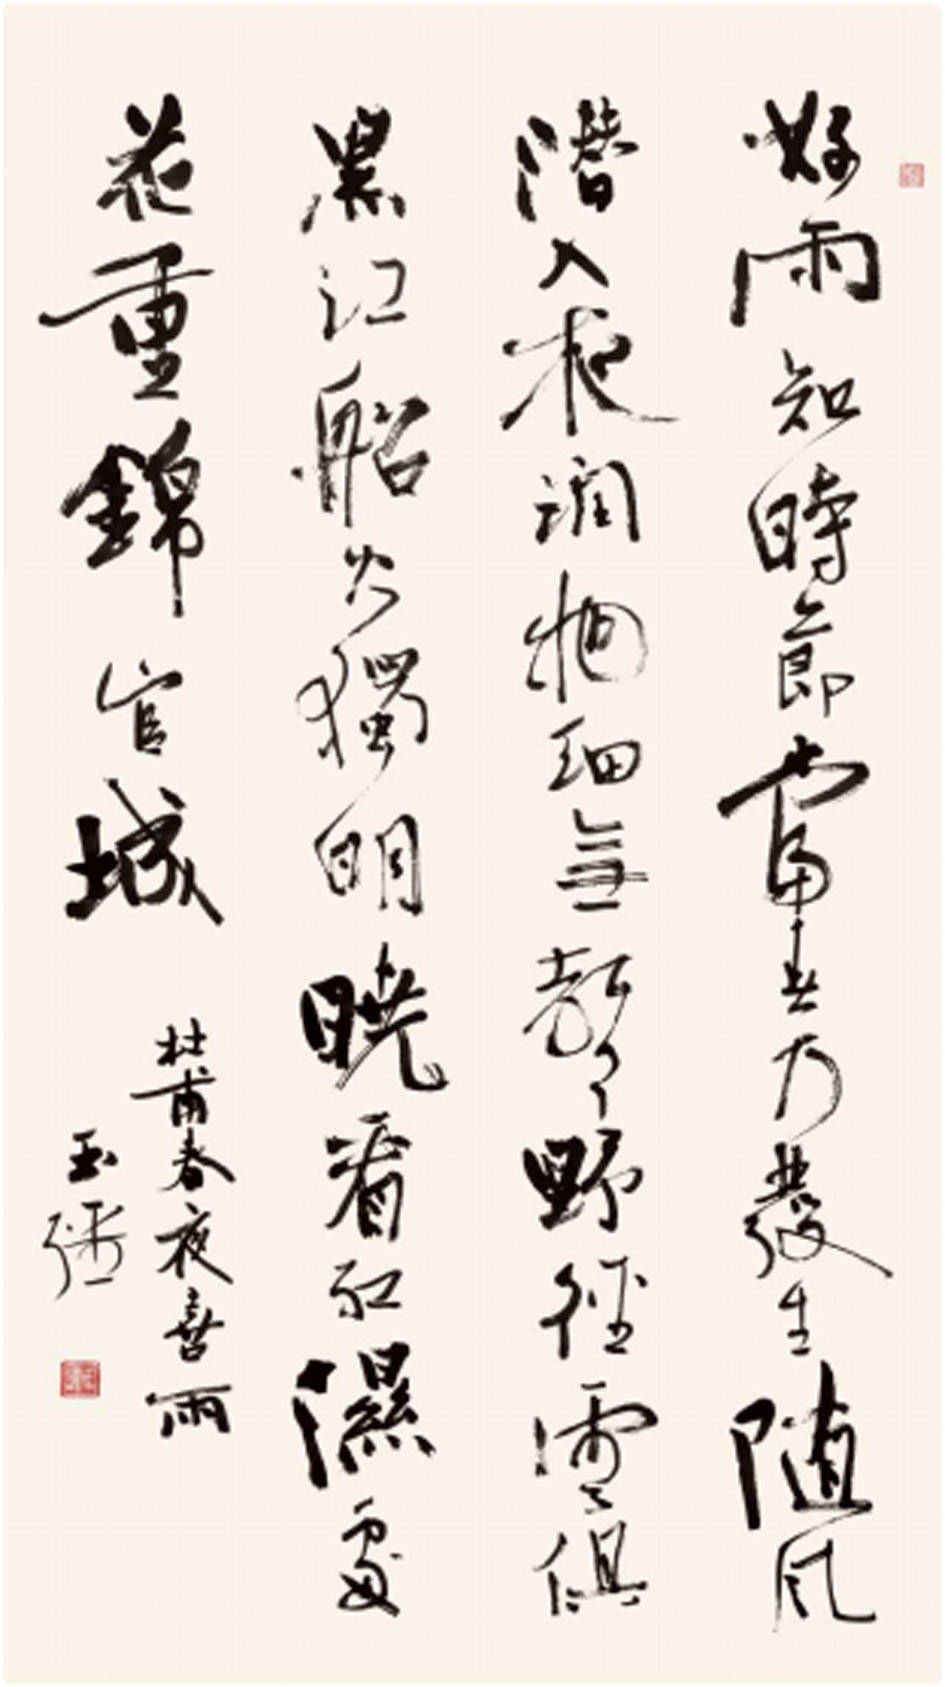 好雨知時節當春乃發生随風
潛入夜潤物細無聲野徑雲俱
黑江船火獨明曉看紅濕處
花重錦官城
杜甫春夜喜雨
玉强